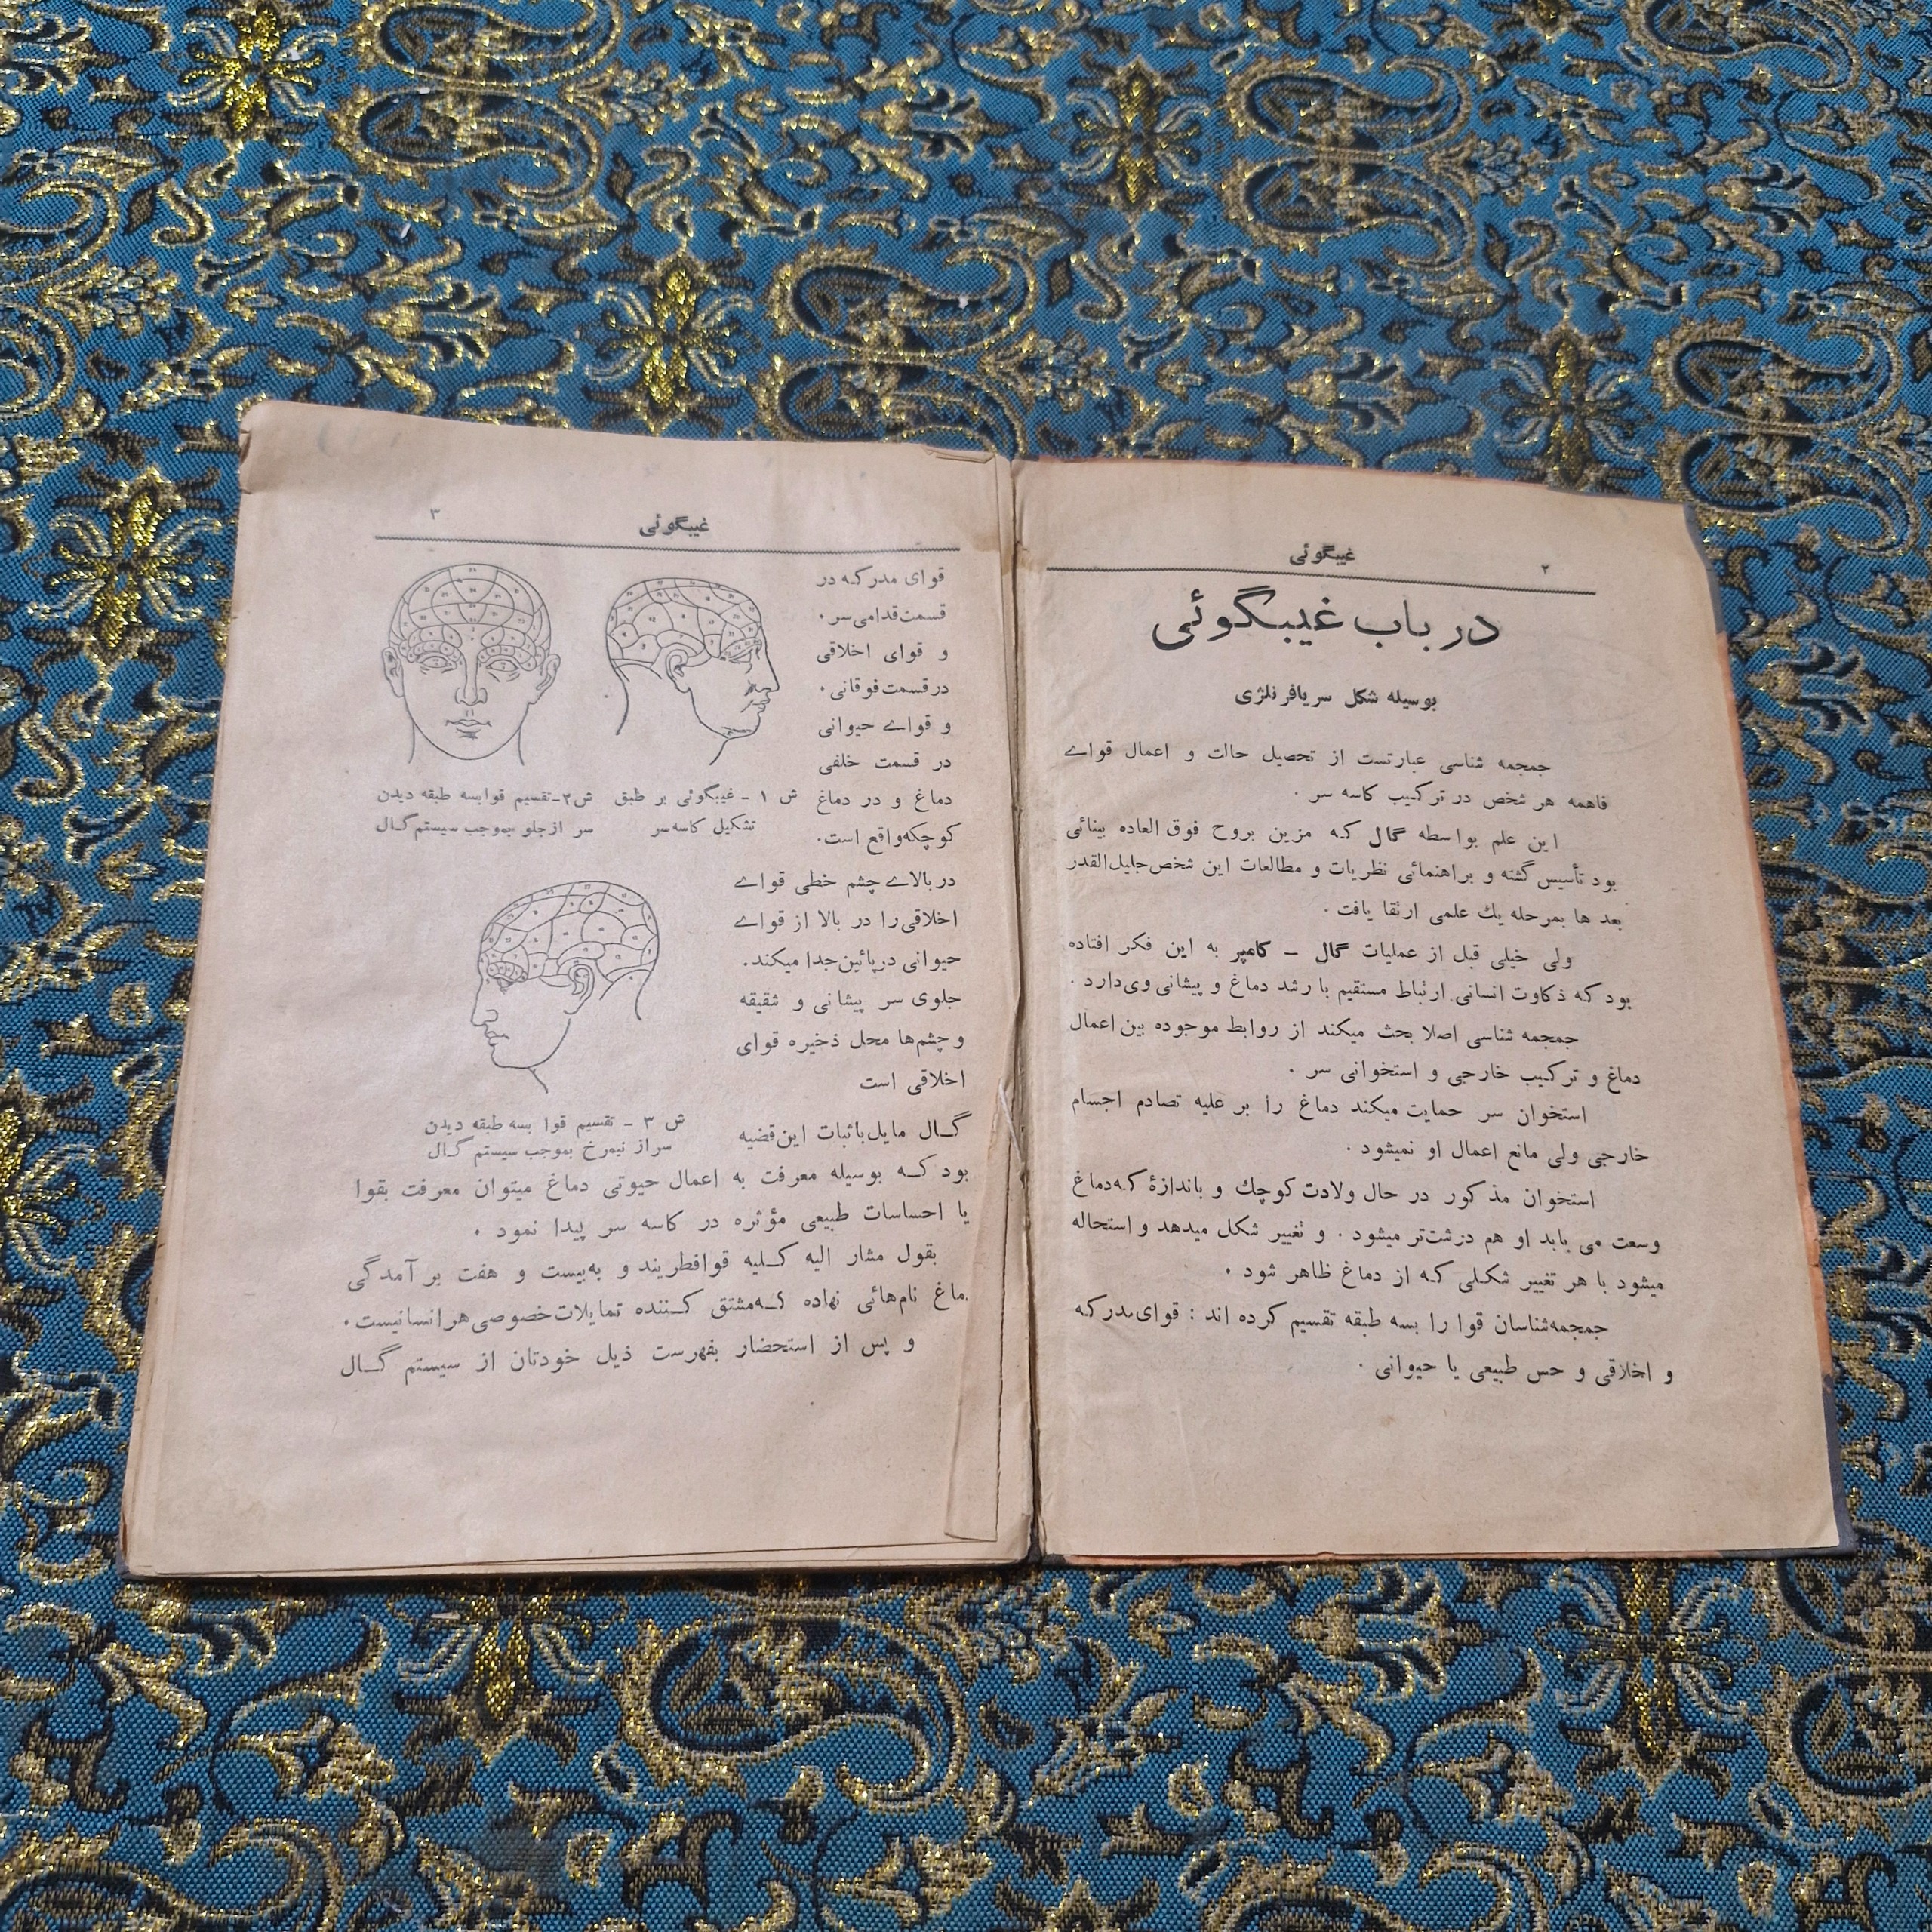 غیبگوئی ۲
در باب غیبگوئی
بوسیله شکل سر یا فرنلژی
جمجمه شناسی عبارتست از تحصیل حالت و اعمال قواے
فاهمه هر شخص در ترکیب کاسه سر .
این علم بواسطه گال که مزین بروح فوق العاده بینائی
بود تأسیس گشته و براهنمائی نظریات و مطالعات این شخص جلیل القدر
بعد ها بمرحله یك علمی ارتقا یافت .
ولی خیلی قبل از عملیات گال ــ کامپر به این فکر افتاده
بود که ذکاوت انسانی ارتباط مستقیم با رشد دماغ و پیشانی وی دارد .
جمجمه شناسی اصلا بحث میکند از روابط موجوده بین اعمال
دماغ و ترکیب خارجی و استخوانی سر .
استخوان سر حمایت میکند دماغ را بر علیه تصادم اجسام
خارجی ولی مانع اعمال او نمیشود .
استخوان مذکور در حال ولادت کوچك و باندازهٔ که دماغ
وسعت می یابد او هم درشت‌تر میشود . و تغییر شکل میدهد و استحاله
میشود با هر تغییر شکلی که از دماغ ظاهر شود .
جمجمه شناسان قوا را بسه طبقه تقسیم کرده اند : قوای مدرکه
و اخلاقی و حس طبیعی یا حیوانی .
غیبگوئی ۳
قوای مدرکه در
قسمت قدامی سر .
و قوای اخلاقی
در قسمت فوقانی .
و قواے حیوانی
در قسمت خلفی
دماغ و در دماغ
کوچکه واقع است .
ش ۱ ــ غیبگوئی بر طبق
تشکیل کاسه سر
ش ۲ ــ تقسیم قوا بسه طبقه دیدن
سر از جلو بموجب سیستم گال
در بالاے چشم خطی قواے
اخلاقی را در بالا از قواے
حیوانی در پائین جدا میکند .
جلوی سر پیشانی و شقیقه
و چشم‌ها محل ذخیره قوای
اخلاقی است
ش ۳ ــ تقسیم قوا بسه طبقه دیدن
سر از نیمرخ بموجب سیستم گال
گال مایل باثبات این قضیه
بود که بوسیله معرفت به اعمال حیوتی دماغ میتوان معرفت بقوا
یا احساسات طبیعی مؤثره در کاسه سر پیدا نمود .
بقول مشار الیه کلیه قوا فطریند و به بیست و هفت بر آمدگی
دماغ نام‌هائی نهاده که مشتق کننده تمایلات خصوصی هر انسانیست .
و پس از استحضار بفهرست ذیل خودتان از سیستم گال